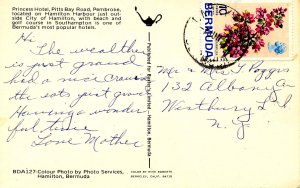 Princess Hotel, Pitts Bay Road, Pembroke,
located on Hamilton Harbour just out-
side City of Hamilton, with beach and
golf course in Southampton is one of
Bermuda's most popular hotels.
Hi,
The weather
is just grand
had a nice cruise
the eats just great
Having a wonder-
ful time
Love Mother
BDA127-Colour Photo by Photo Services,
Hamilton, Bermuda
Hamilton, Bermuda
COLOR BY MIKE ROBERTS
BERKELEY, CALIF. 94710
BERMUDA
Mr & Mrs T Poggis
132 Albany Av
Westbury L I
N. Y